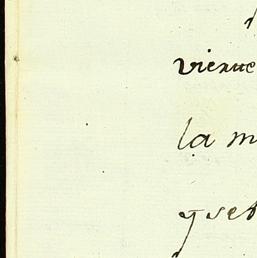 vienne
la m
y set